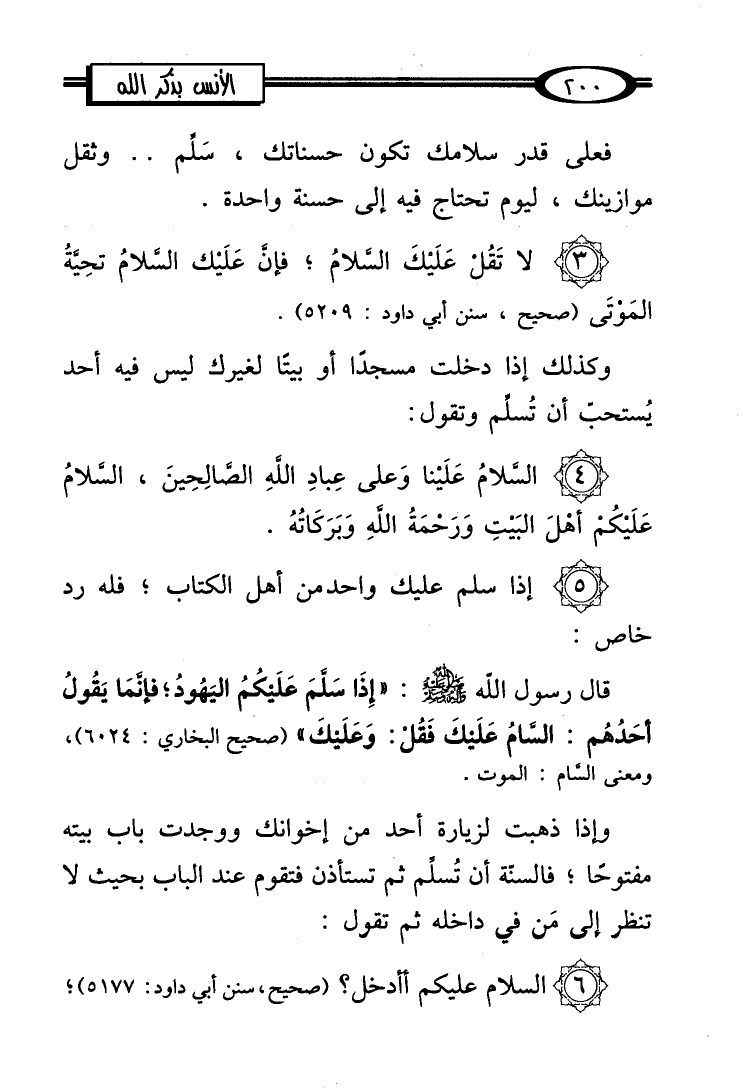 الأنس بذكر الله ٢٠٠
فعلى قدر سلامك تكون حسناتك ، سَلِّم .. وثقل
موازينك ، ليوم تحتاج فيه إلى حسنة واحدة .
٣ لا تَقُلْ عَلَيْكَ السَّلامُ ؛ فإنَّ عَلَيْك السَّلامُ تحيَّةُ
المَوْتَى (صحيح ، سنن أبي داود : ٥٢٠٩) .
وكذلك إذا دخلت مسجدًا أو بيتًا لغيرك ليس فيه أحد
يُستحبّ أن تُسلِّم وتقول:
٤ السَّلامُ عَلَيْنا وَعلى عِبادِ اللَّهِ الصَّالِحِينَ ، السَّلامُ
عَلَيْكُمْ أهْلَ البَيْتِ وَرَحْمَةُ اللَّهِ وَبَرَكَاتُهُ .
٥ إذا سلم عليك واحدمن أهل الكتاب ؛ فله رد
خاص :
قال رسول اللّه ﷺ : «إِذَا سَلَّمَ عَلَيْكُمُ اليَهُودُ؛ فإنَّمَا يَقُولُ
أحَدُهُم : السَّامُ عَلَيْكَ فَقُلْ: وَعَلَيْكَ» (صحيح البخاري : ٦٠٢٤)،
ومعنى السَّام : الموت .
وإذا ذهبت لزيارة أحد من إخوانك ووجدت باب بيته
مفتوحًا ؛ فالسنّة أن تُسلِّم ثم تستأذن فتقوم عند الباب بحيث لا
تنظر إلى مَن في داخله ثم تقول :
٦ السلام عليكم أأدخل؟ (صحيح، سنن أبي داود: ٥١٧٧)؛